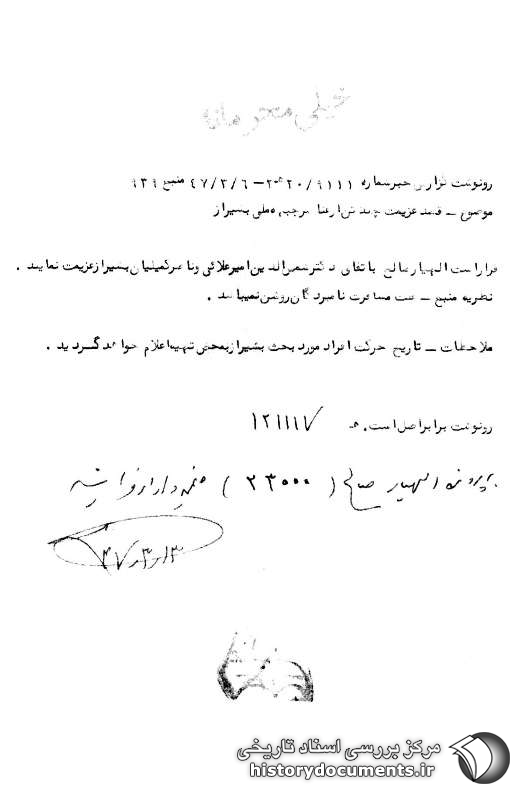 خیلی محرمانه
رونوشت گزارش خبر شماره ۲۰/۹۱۱۱ هـ ۲ – ۴۷/۳/۶ منبع ۹۳۹
موضوع – قصد عزیمت چند تن از جبهه ملی بشیراز
قرار است الهیار صالح باتفاق دکتر شمس الدین امیرعلائی و ناصر کمیلیان بشیراز عزیمت نمایند .
نظریه منبع – علت مسافرت نامبردگان روشن نمیباشد .
ملاحظات – تاریخ حرکت افراد مورد بحث بشیراز بمحض تهیه اعلام خواهد گردید .
رونوشت برابر اصل است . هـ ۱۲۱۱۱۷
پرونده الهیار صالح ( ۲۳۰۰۰ )
۴۷
خیلی محرمانه
مرکز بررسی اسناد تاریخی
historydocuments.ir